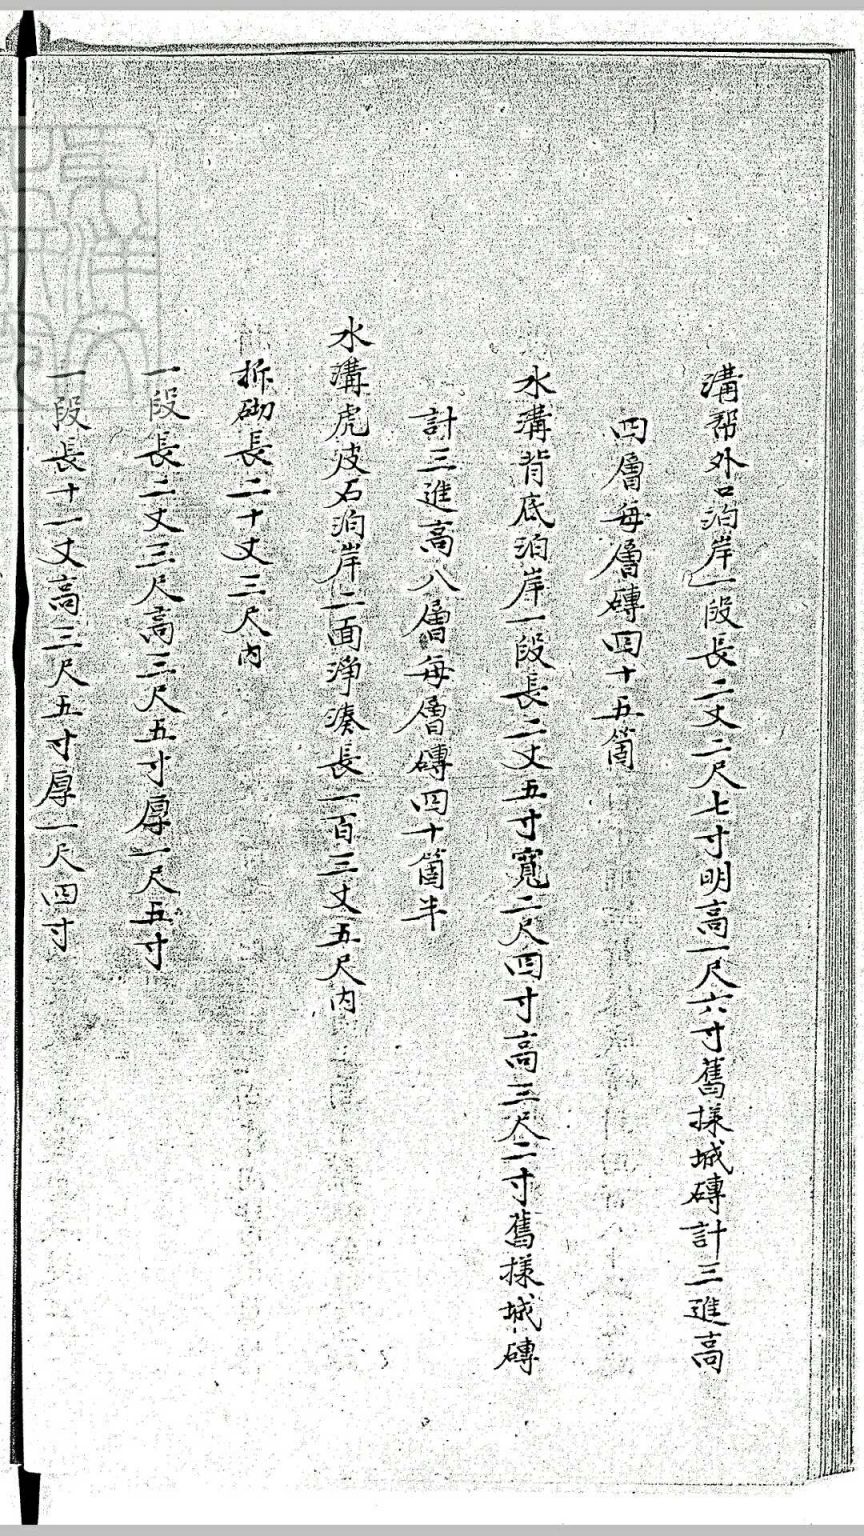 溝帮外口泊岸一段長二丈二尺七寸明高一尺六寸舊様城磚計三進高
四層每層磚四十五箇
水溝背底泊岸一段長二丈五寸寬二尺四寸高三尺二寸舊様城磚
計三進高八層每層磚四十箇半
水溝虎皮石泊岸二面淨湊長一百三丈五尺內
拆砌長二十丈三尺內
一段長二丈三尺高三尺五寸厚一尺五寸
一段長十一丈高三尺五寸厚一尺四寸